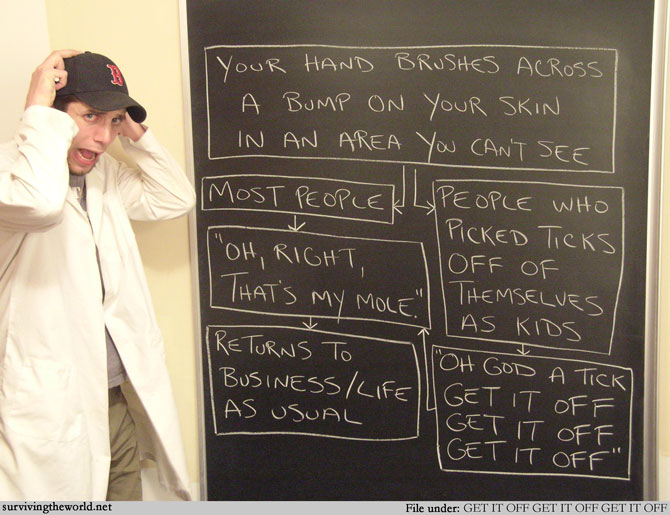 B
YOUR HAND BRUSHES ACROSS
A BUMP ON YOUR SKIN
IN AN AREA YOU CAN'T SEE
MOST PEOPLE
"OH, RIGHT,
THAT'S MY MOLE."
RETURNS TO
BUSINESS/LIFE
AS USUAL
PEOPLE WHO
PICKED TICKS
OFF OF
THEMSELVES
AS KIDS
"OH GOD A TICK
GET IT OFF
GET IT OFF
GET IT OFF"
survivingtheworld.net
File under: GET IT OFF GET IT OFF GET IT OFF